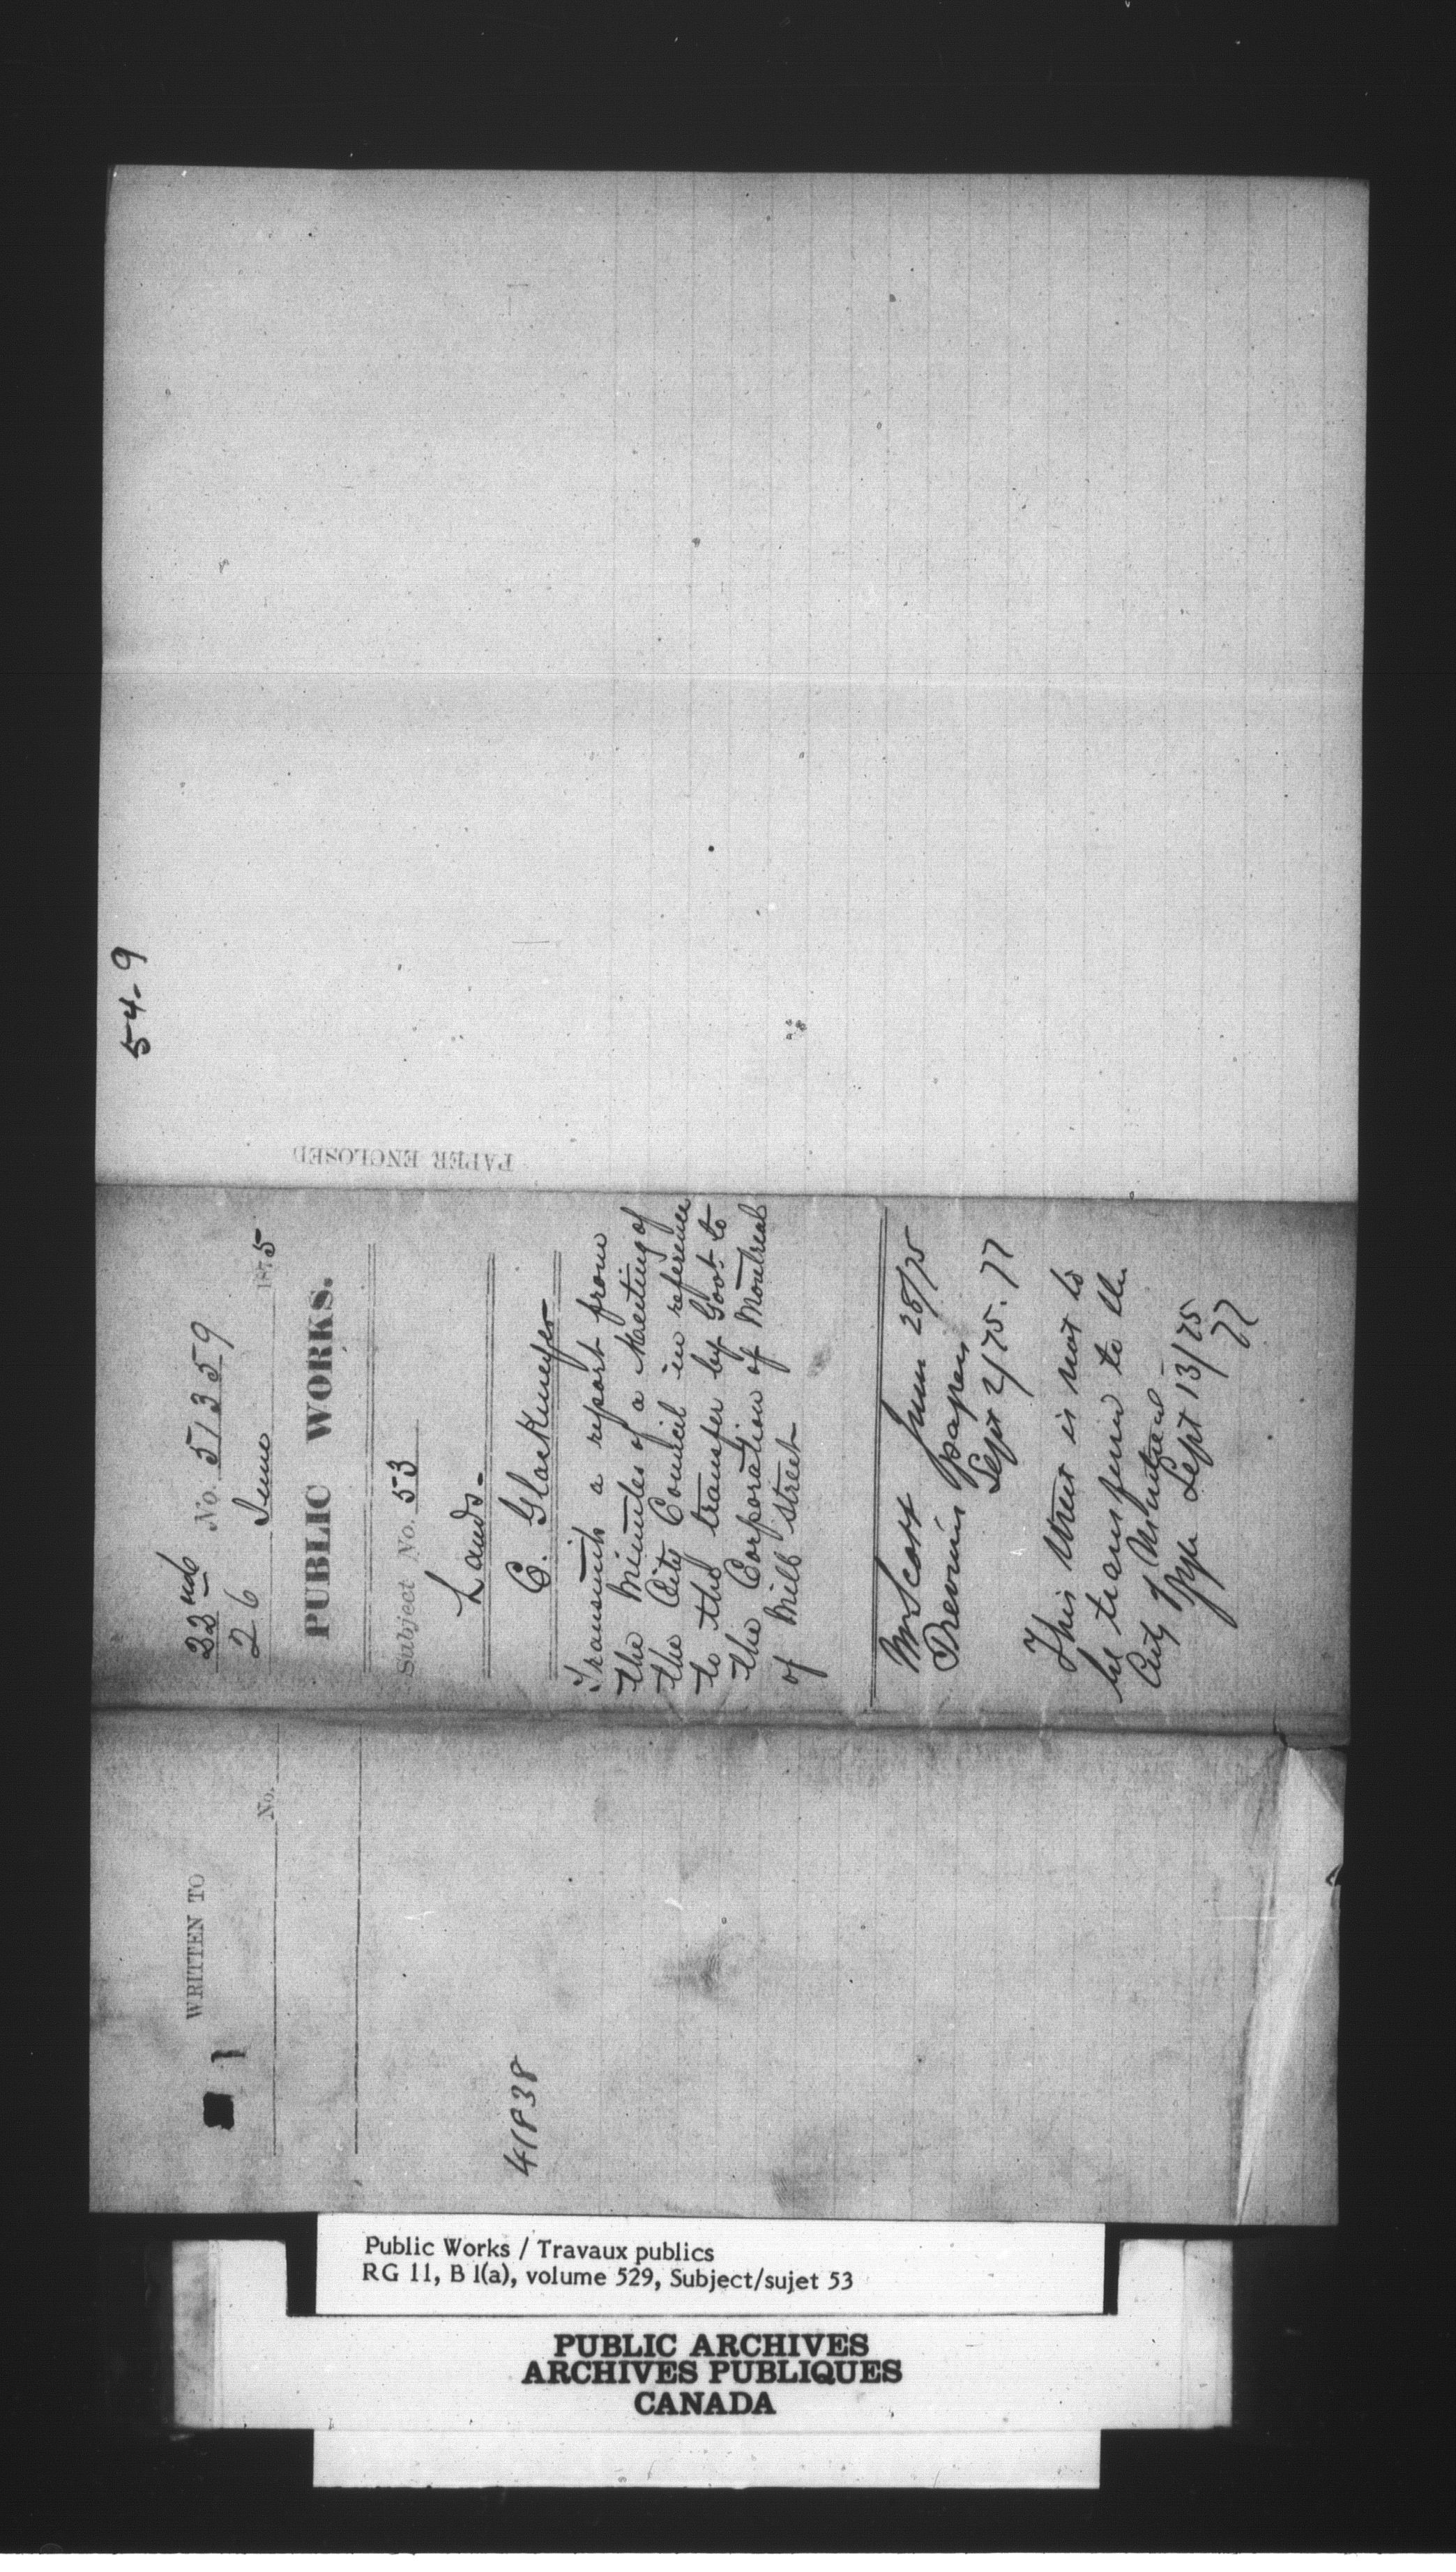 54-9
PAPER ENCLOSED
22nd No. 51359
26 June 1875
PUBLIC WORKS.
Subject No. 53
Lands-
C. Glackmeyer
Transmits a report from
the Minutes of a Meeting of
the City Council in reference
to the transfer by Govt to
the Corporation of Montreal
of Mill Street
Mr Scott June 28/75
Previous papers
Sept 2/75. 77
This street is not to
be transferred to the
City of Montreal
Sept 13/75
77
WRITTEN TO
No.
1
41838
Public Works / Travaux publics
RG 11, B 1(a), volume 529, Subject/sujet 53
PUBLIC ARCHIVES
ARCHIVES PUBLIQUES
CANADA